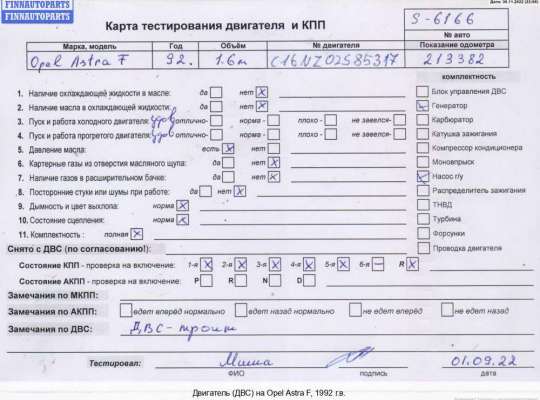 FINNAUTOPARTS
FINNAUTOPARTS
Карта тестирования двигателя и КПП
S-6166
№ авто
Марка, модель Год Объём № двигателя Показание одометра
Opel Astra F 92. 1.6л C16NZ02585317 213382
комплектность
1. Наличие охлаждающей жидкости в масле: да нет X
2. Наличие масла в охлаждающей жидкости: да нет X
3. Пуск и работа холодного двигателя: удов отлично- норма - плохо - не завелся-
4. Пуск и работа прогретого двигателя: удов отлично- норма - плохо - не завелся-
5. Давление масла: есть X нет
6. Картерные газы из отверстия масляного щупа: да нет X
7. Наличие газов в расширительном бачке: да нет X
8. Посторонние стуки или шумы при работе: да нет X
9. Дымность и цвет выхлопа: норма X
10. Состояние сцепления: норма X
11. Комплектность : полная X
Блок управления ДВС
Генератор
Карбюратор
Катушка зажигания
Компрессор кондиционера
Моновпрыск
Насос г/у
Распределитель зажигания
ТНВД
Турбина
Форсунки
Проводка двигателя
Снято с ДВС (по согласованию!):
Состояние КПП - проверка на включение: 1-я X 2-я X 3-я X 4-я X 5-я X 6-я — R X
Состояние АКПП - проверка на включение: P R N D
Замечания по МКПП:
Замечания по АКПП: едет вперёд нормально едет назад нормально едет вперёд едет назад
Замечания по ДВС: ДВС-троит
Тестировал: Миша 01.09.22
ФИО подпись дата
Двигатель (ДВС) на Opel Astra F, 1992 г.в.